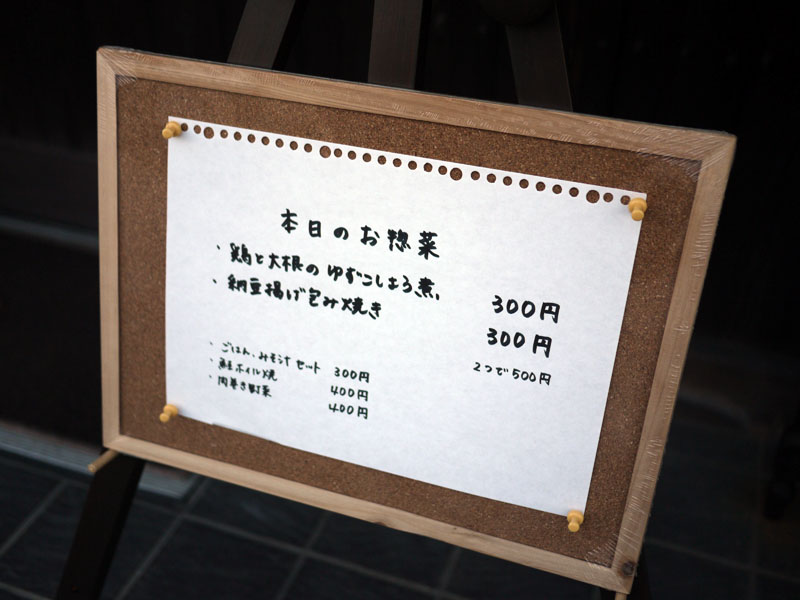 本日のお惣菜
・鶏と大根のゆずこしょう煮。 300円
・納豆揚げ包み焼き 300円
2つで500円
・ごはん、みそ汁セット 300円
・鮭ホイル焼 400円
・肉巻き野菜 400円